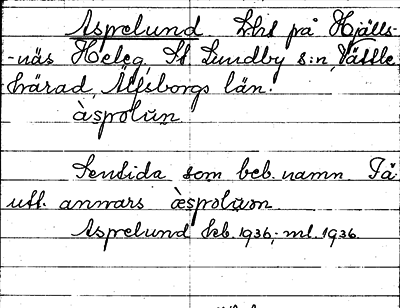 Asprelund Lht på Hjälls-
-näs Heleg, St Lundby s:n, Vättle
härad, Älfsborgs län.
àspəlun
Sentida som beb. namn. Få
utt. annars
Asprelund kb. 1936; ml. 1936.